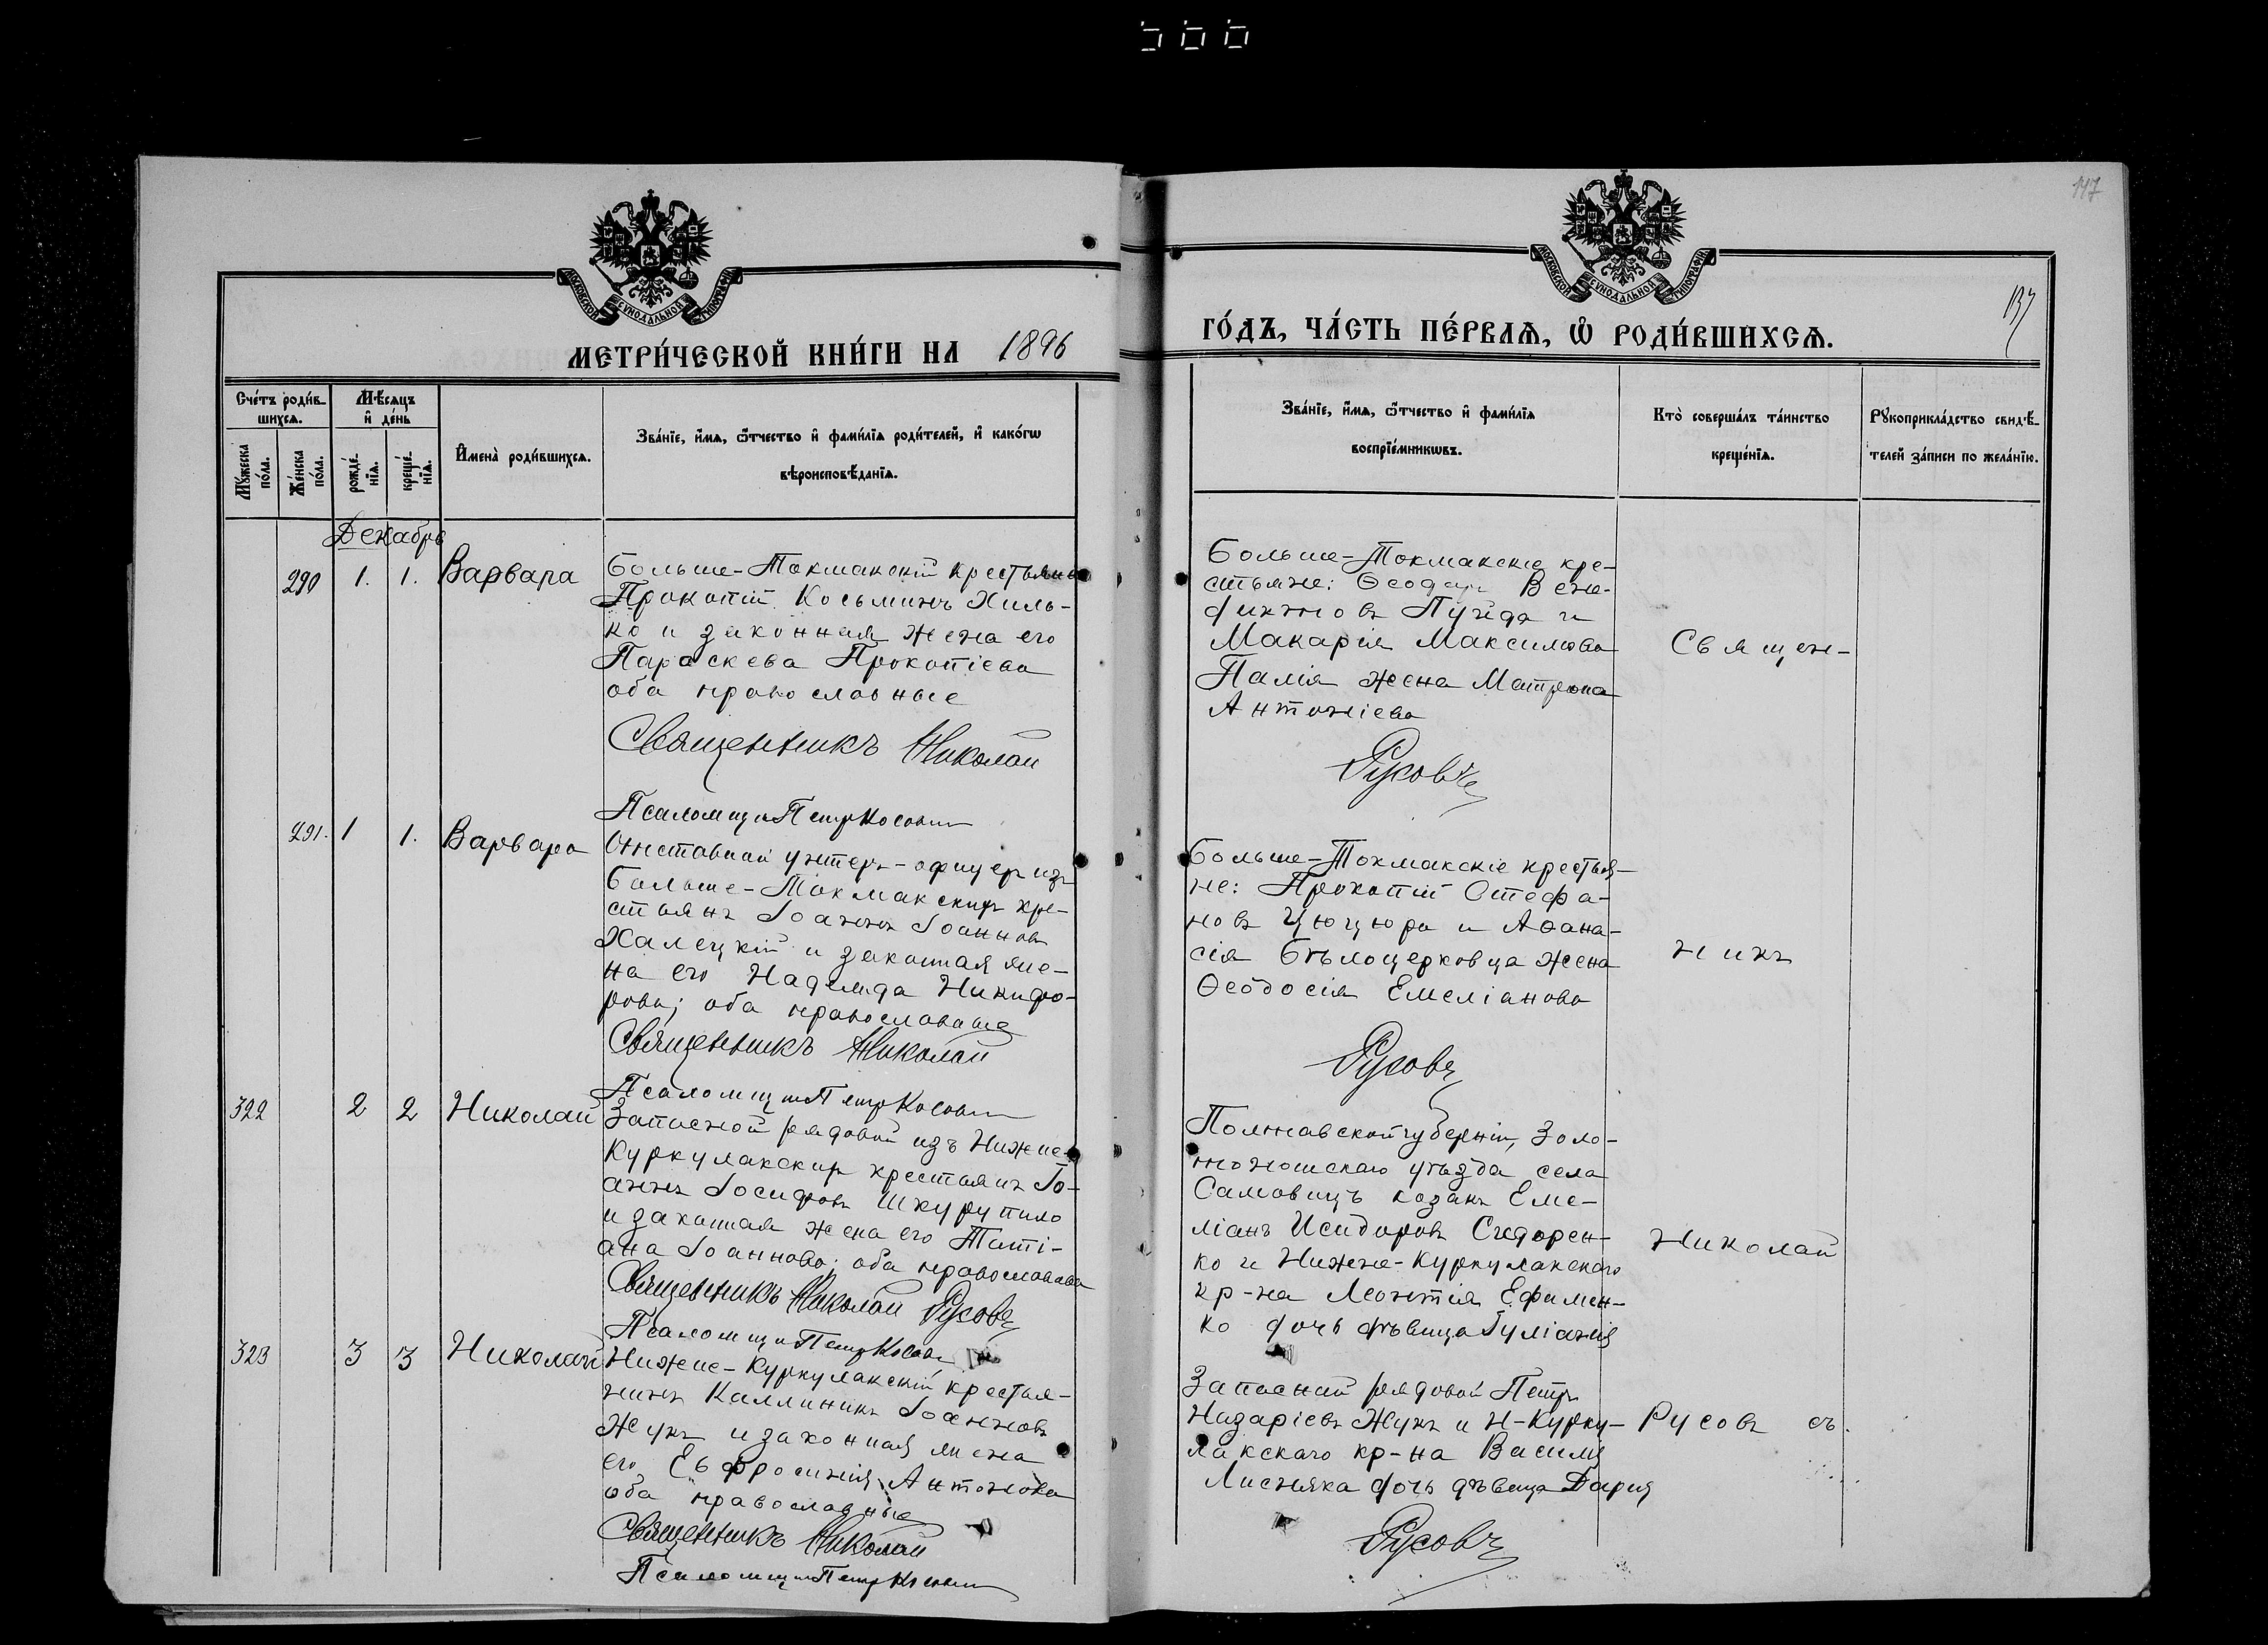 147
МОСКОВСКОЙ СѴНОДАЛЬНОЙ ТИПОГРАФІИ
МОСКОВСКОЙ СѴНОДАЛЬНОЙ ТИПОГРАФІИ
137
МЕТРИ́ЧЕСКОЙ КНИ́ГИ НА 1896
ГО́ДЪ, ЧА́СТЬ ПЕ́РВАѦ, Ѡ҆ РОДИ́ВШИХСѦ.
Сче́тъ роди́в-
шихсѧ.
Мѣ́сѧцъ
и҆ де́нь
Мꙋ́жеска
по́ла.
Же́нска
по́ла.
рожде́-
нїѧ.
креще́-
нїѧ.
И҆мена̀ роди́вшихсѧ.
Зва́нїе, и҆́мѧ, ѻ҆́тчество и҆ фами́лїѧ роди́телей, и҆ како́гѡ
вѣроисповѣ́данїѧ.
Зва́нїе, и҆́мѧ, ѻ҆́тчество и҆ фами́лїѧ
воспрїе́мникѡвъ.
Кто̀ соверша́лъ та́инство
креще́нїѧ.
Рꙋкоприкла́дство свидѣ́-
телей за́писи по жела́нїю.
Декабрь
290 1. 1. Варвара
Больше-Токмакскій крестьянинъ
Прокопій Косьминъ Хиль-
ко и законная жена его
Параскева Прокопіева
оба православные
Священникъ Николай
Псаломщ Петръ Косовичъ
Больше-Токмакскіе кре-
стьяне: Ѳеодоръ Вене-
диктовъ и
Макарія Максимова
Палія жена Матрона
Антоніева
Русовъ
Священ-
291. 1 1. Варвара
Отставной унтеръ-офицеръ изъ
Больше-Токмакскихъ кре-
стьянъ Іоаннъ Іоанновъ
Халецкій и законная же-
на его Надежда Никифо-
рова; оба православные
Священникъ Николай
Псаломщ Петръ Косовичъ
Больше-Токмакскіе крестья-
не: Прокопій Стефа-
новъ Цюцюра и Аѳана-
сія Бѣлоцерковца жена
Ѳеодосія Емеліанова
Русовъ
никъ
322 2 2 Николай
Запасной рядовой изъ Нижне-
Куркулакскихъ крестьянъ Іо-
аннъ Іосифовъ Шкурупило
и законная жена его Таті-
ана Іоаннова; оба православные
Священникъ Николай Русовъ
Псаломщ Петръ Косовичъ
Полтавской губерніи, Золо-
тоношскаго уѣзда села
козакъ Еме-
ліанъ Исидоровъ Сидорен-
ко и Нижне-Куркулакскаго
кр-на Леонтія Ефимен-
ко дочь дѣвица Іуліанія
Николай
323 3 3 Николай
Нижне-Куркулакскій крестья-
нинъ Каллиникъ Іоанновъ
Жукъ и законная жена
его Евфросинія Антонова
оба православные
Священникъ Николай
Псаломщ Петръ Косовичъ
Запасный рядовой Петръ
Назаріевъ Жукъ и Н-Курку-
лакскаго кр-на Василія
Лисняка дочь дѣвица Дарія
Русовъ
Русовъ съ.